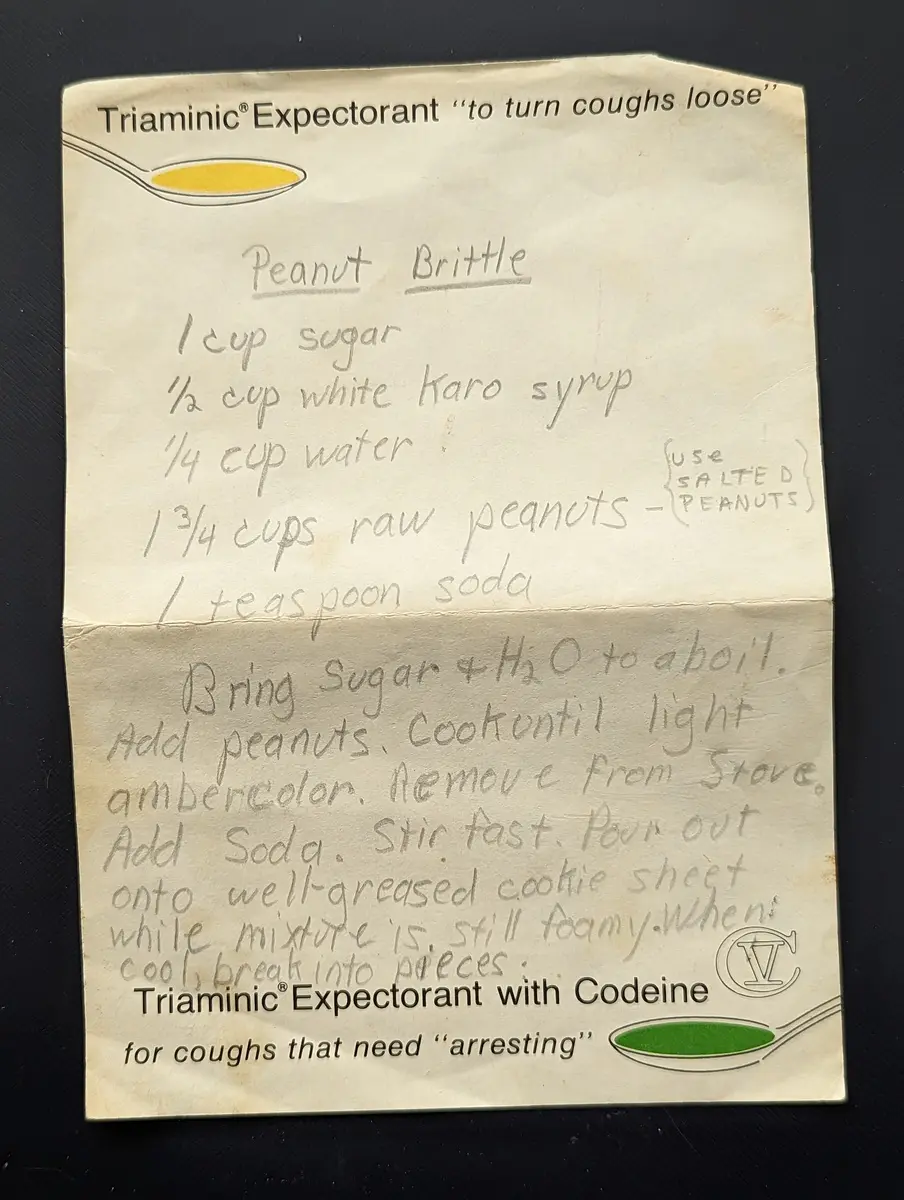 Triaminic® Expectorant "to turn coughs loose"
Peanut Brittle
1 cup sugar
1/2 cup white Karo syrup
1/4 cup water
1 3/4 cups raw peanuts - {USE SALTED PEANUTS}
1 teaspoon soda
Bring Sugar & H₂O to a boil.
Add peanuts. Cook until light
amber color. Remove from Stove.
Add Soda. Stir fast. Pour out
onto well-greased cookie sheet
while mixture is still foamy. When
cool, break into pieces.
CV
Triaminic® Expectorant with Codeine
for coughs that need "arresting"